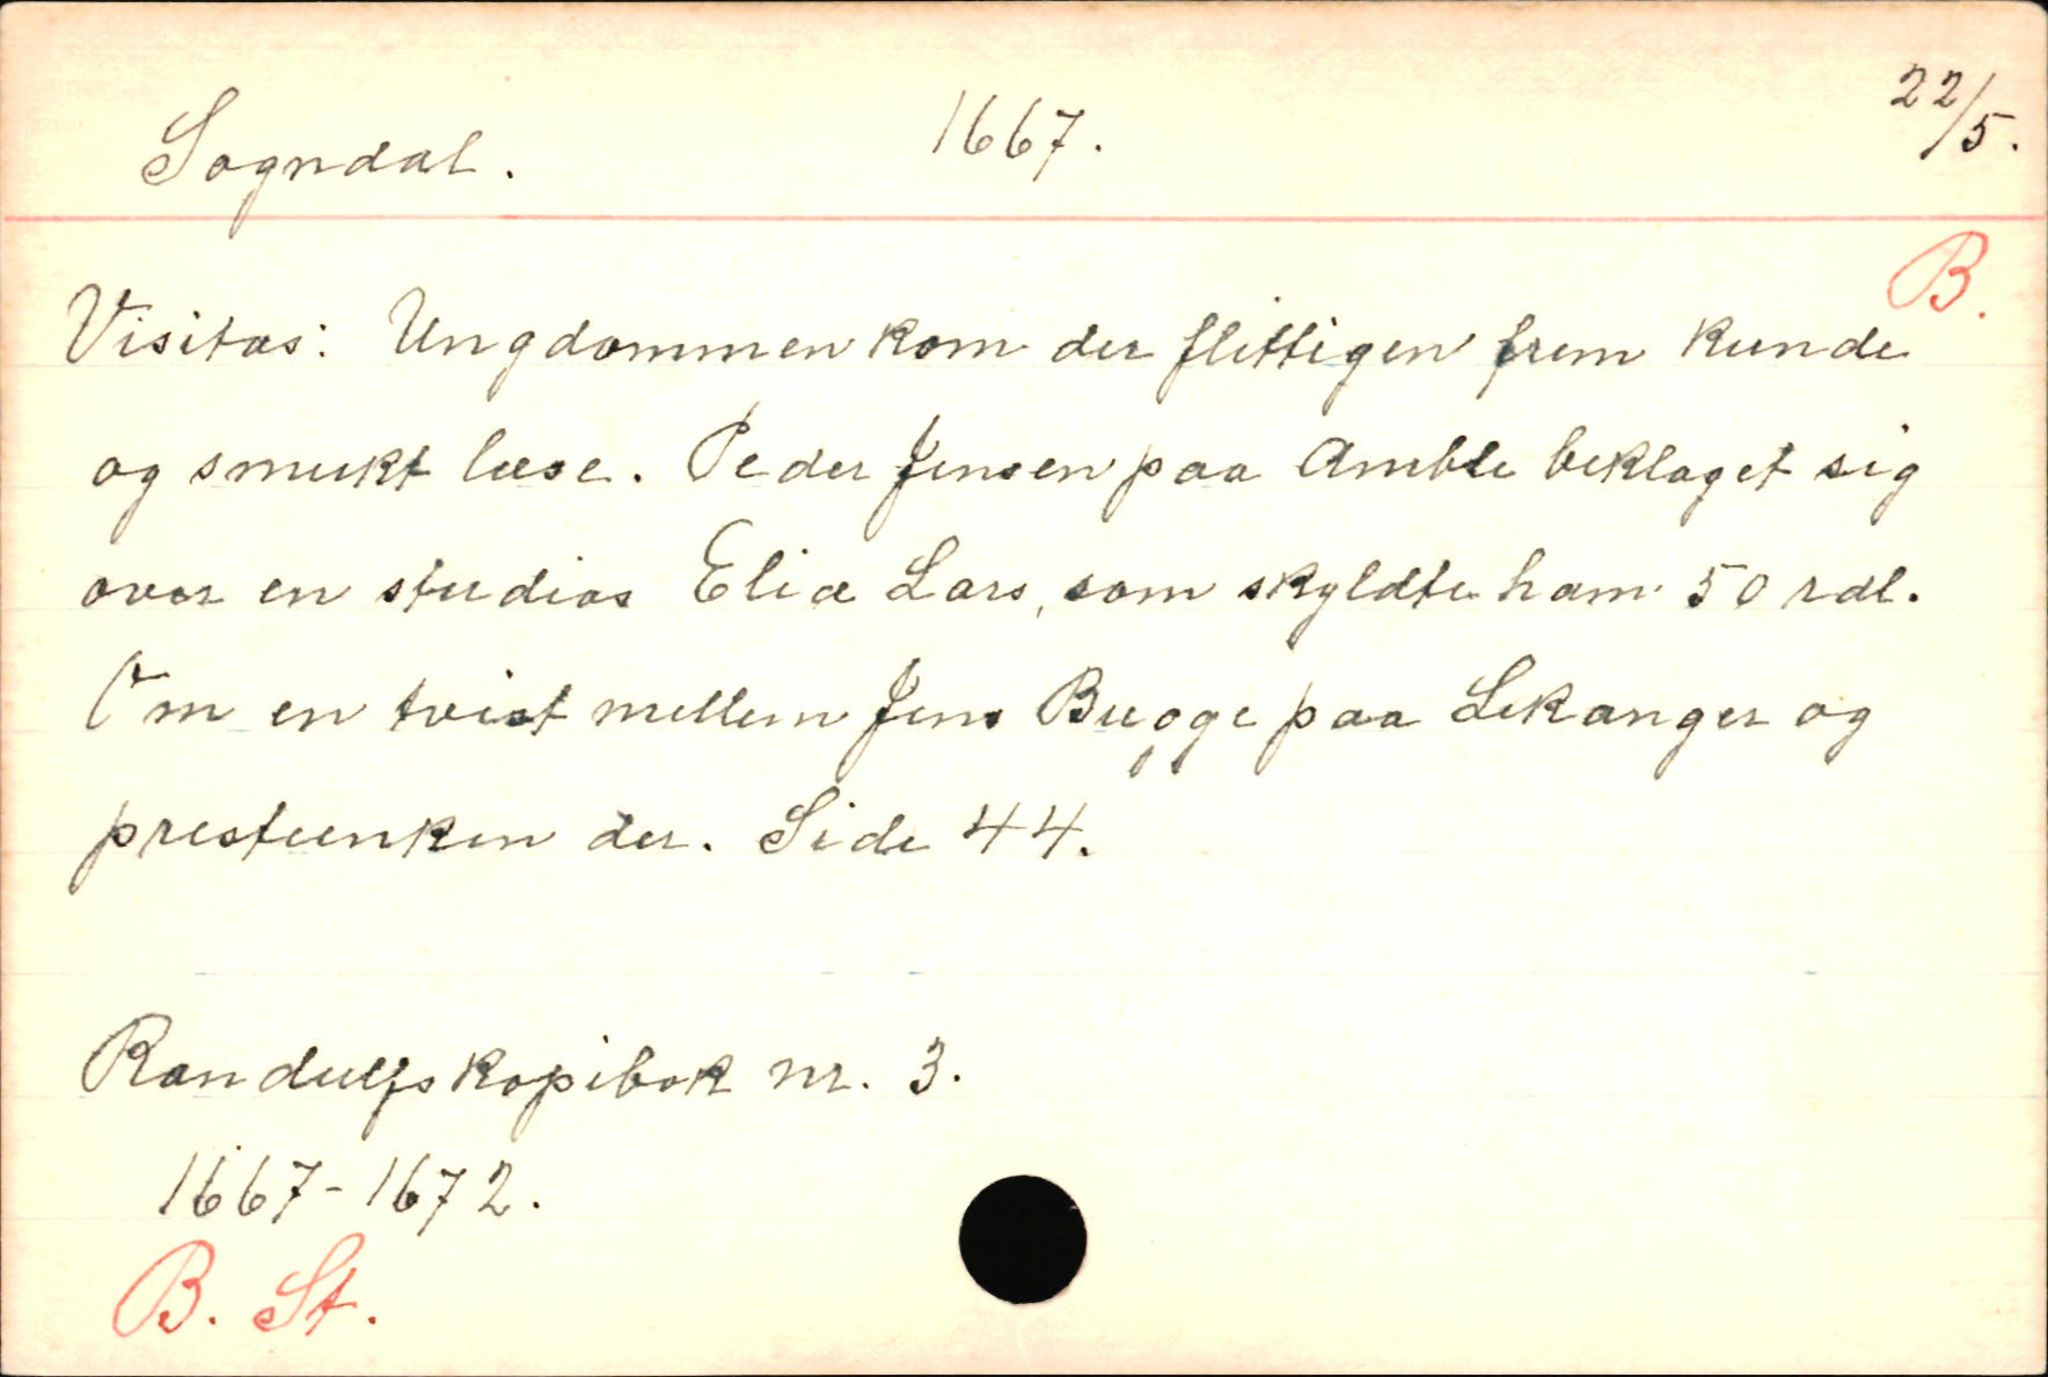 Sogndal. 1667. 22/5.
B.
Visitas: Ungdommen kom der flittigen frem kunde
og smukt læse. Peder Jensen paa Amble beklaget sig
over en studios Eliæ Lars, som skyldte ham 50 rdl.
Om en tvist mellem Jens Bugge paa Lekanger og
presteenken der. Side 44.
Randulfs kopibok nr. 3.
1667-1672.
B. St.